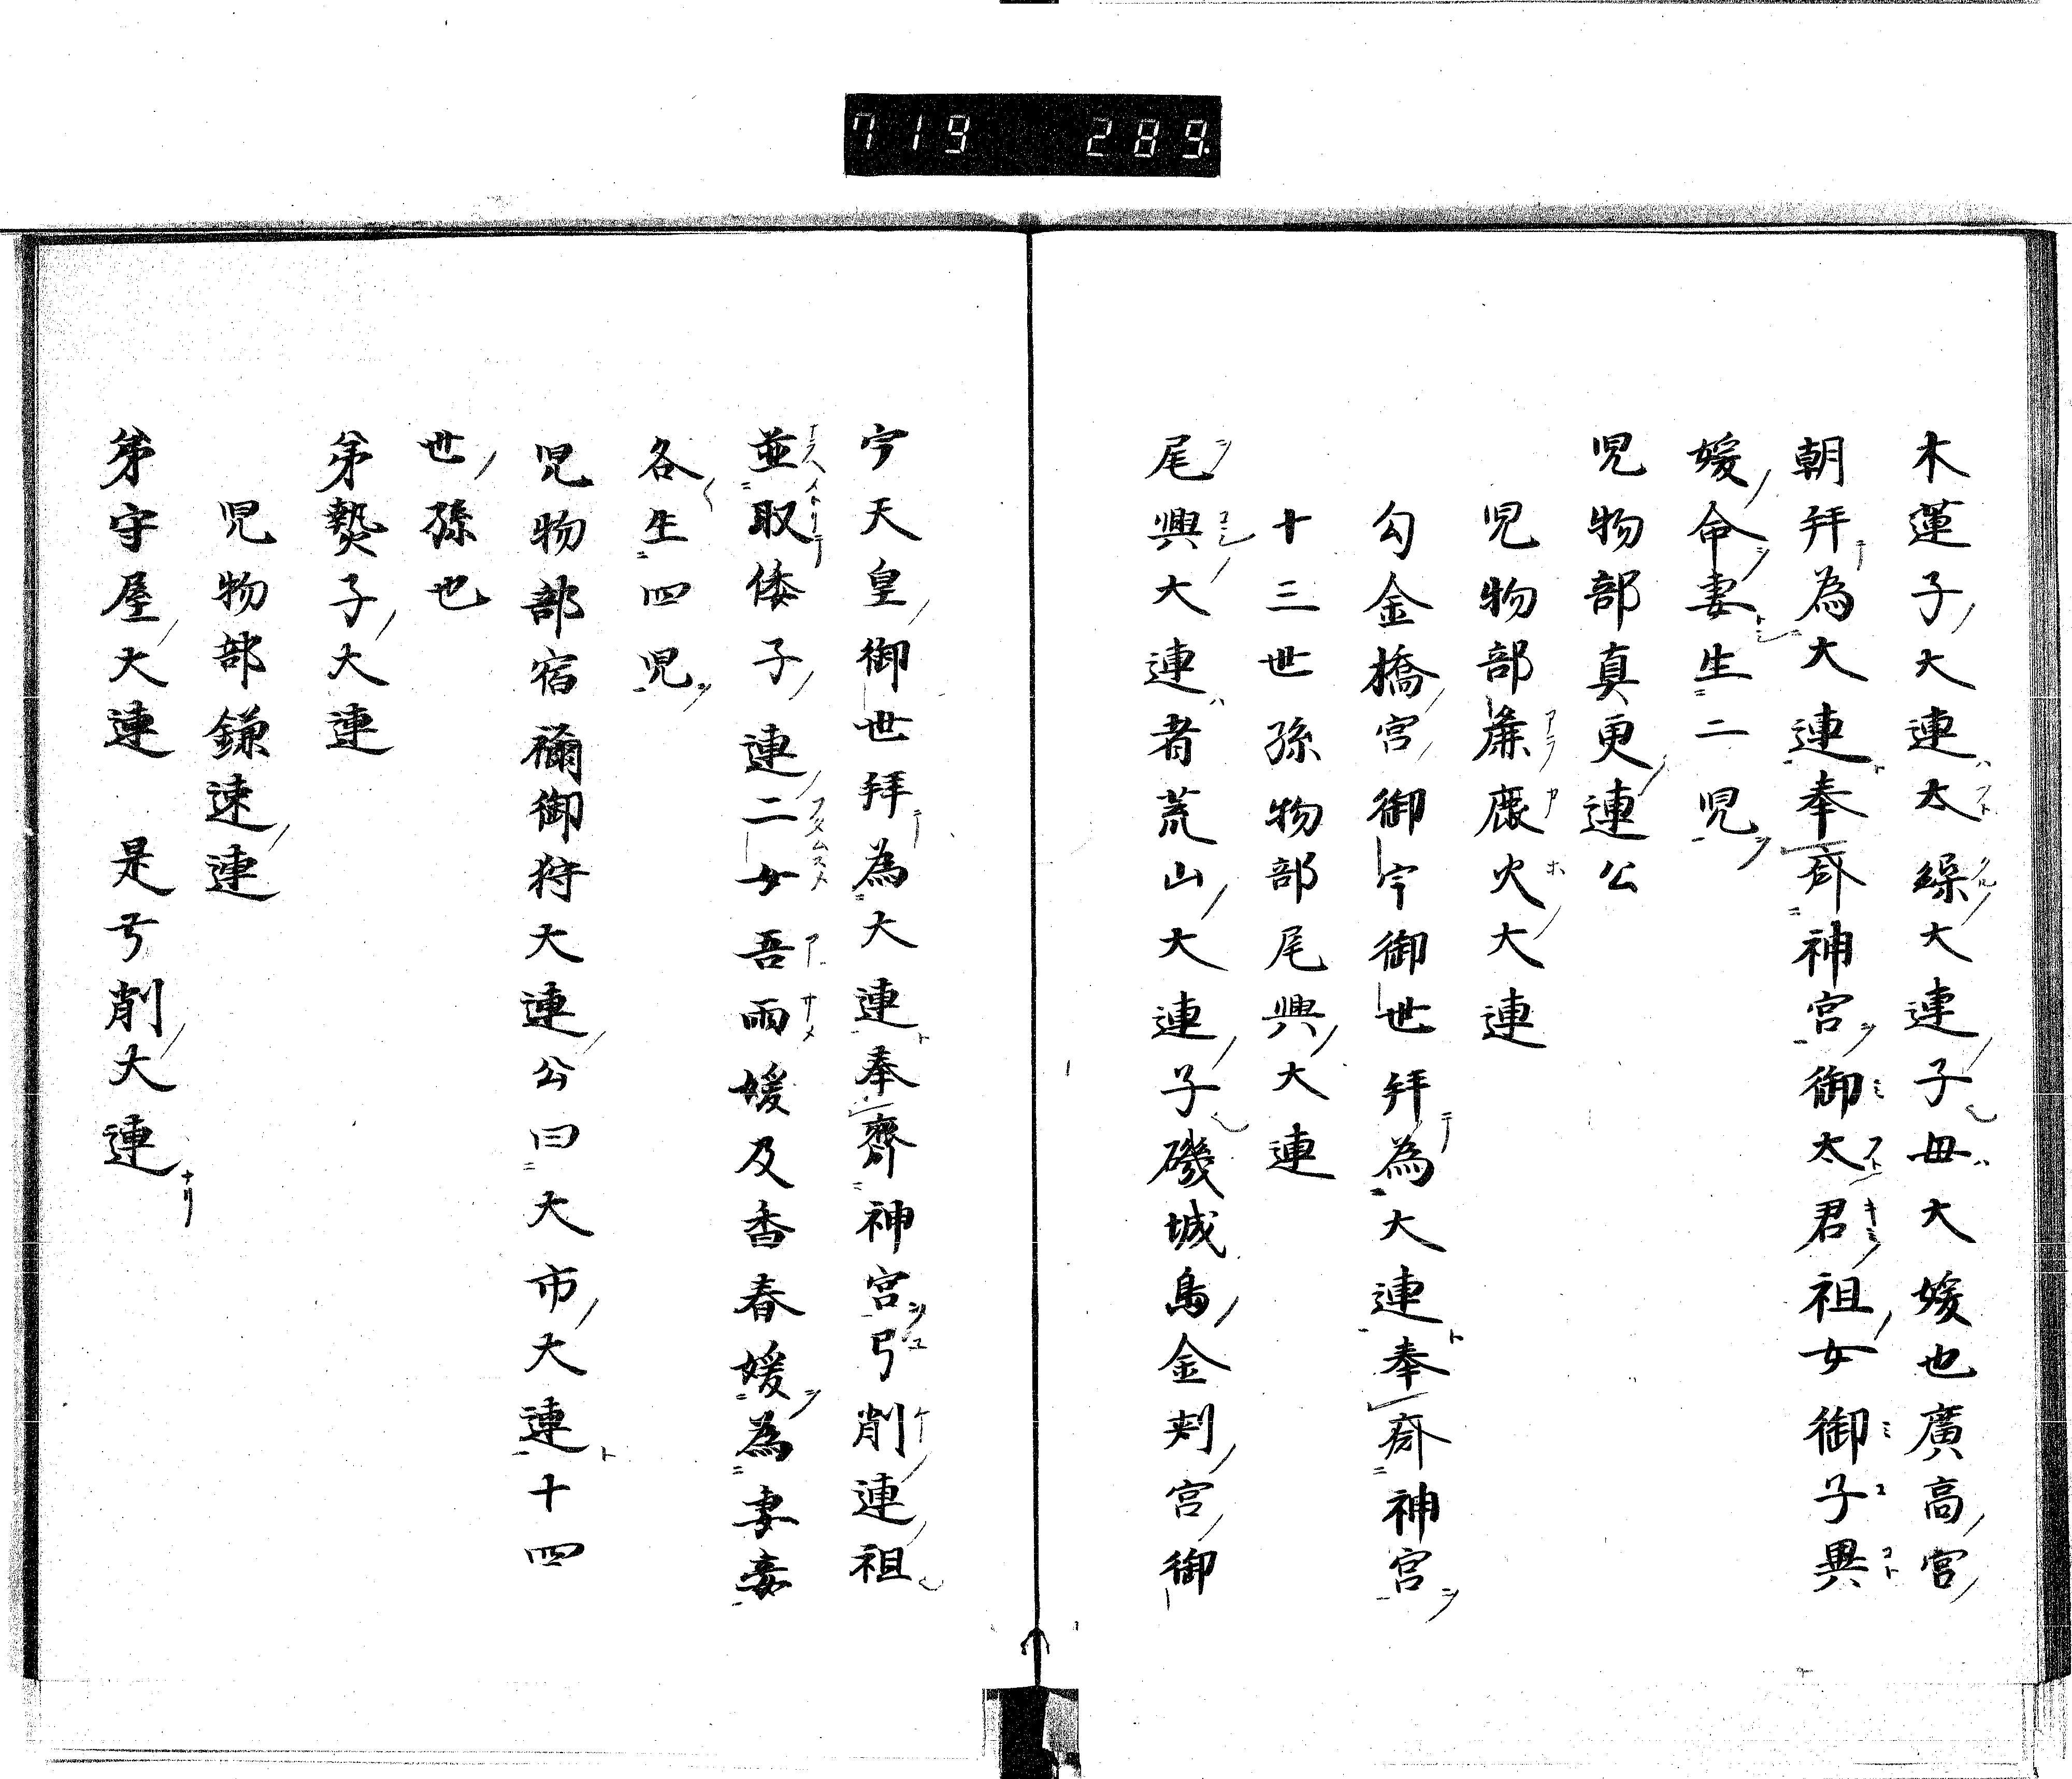 719 289
木蓮子大連太繰大連子母大媛也廣高宮
朝拝為大連奉斎神宮御太君祖女御子異
媛命妻生二児
児物部真更連公
児物部麁鹿火大連
勾金橋宮御宇御世拝為大連奉斎神宮
十三世孫物部尾興大連
尾興大連者荒山大連子磯城島金刺宮御
宇天皇御世拝為大連奉齋神宮弓削連祖
並取倭子連二女吾雨媛及香春媛為妻妾
各生四児
児物部宿禰御狩大連公曰大市大連十四
世孫也
弟贄子大連
児物部鎌速連
弟守屋大連 是弓削大連